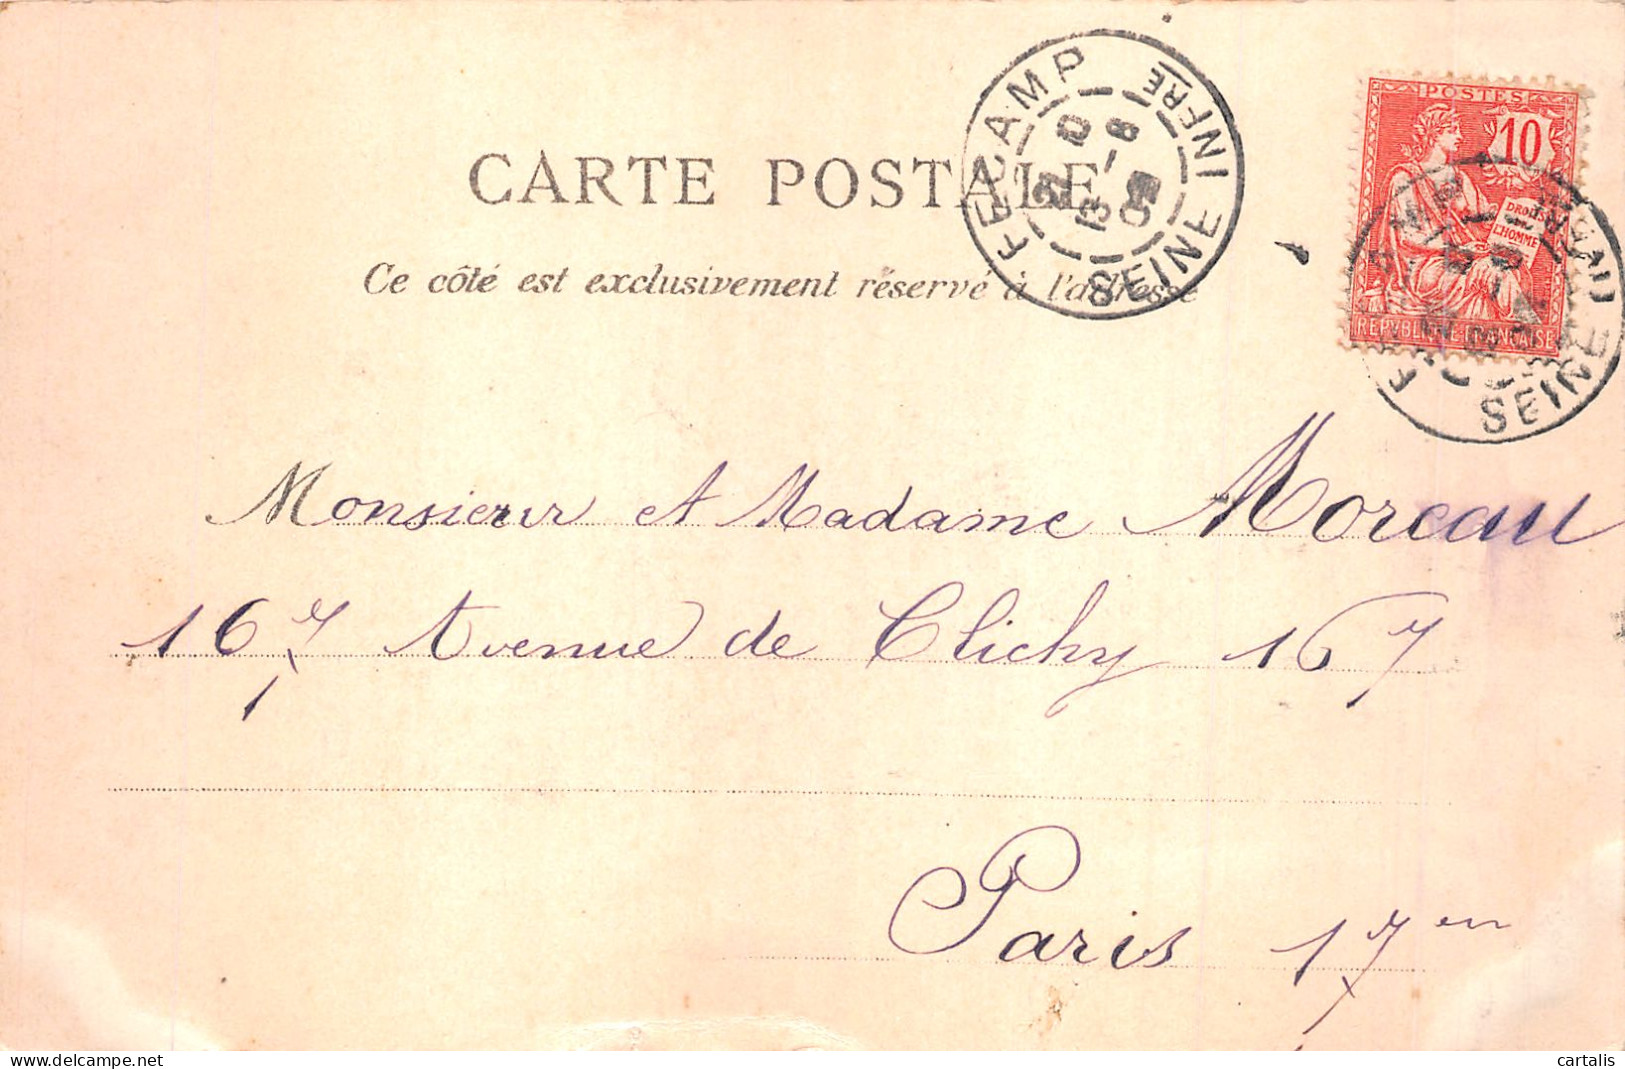 CARTE POSTALE
Ce côté est exclusivement réservé à l'adresse
FÉCAMP
SEINE INFRE
POSTES
10
DROITS
L'HOMME
REPUBLIQUE FRANÇAISE
SEINE
Monsieur et Madame Moreau
167 Avenue de Clichy 167
Paris 17en
www.delcampe.net
cartalis